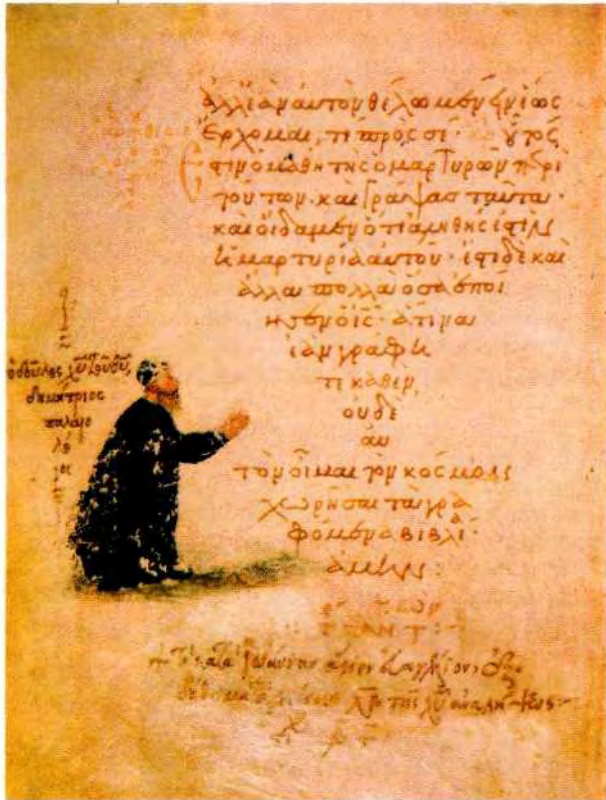 ἀλλ ἐὰν αὐτὸν θέλω μένειν ἕως
ἔρχομαι, τί πρὸς σέ· οὗτός
ἐστιν ὁ μαθητὴς ὁ μαρτυρῶν περὶ
τούτων· καὶ γράψας ταῦτα·
καὶ οἴδαμεν ὅτι ἀληθής ἐστιν
ἡ μαρτυρία αὐτοῦ· ἔστι δὲ καὶ
ἄλλα πολλὰ ὅσα ἐποί
ησεν ὁ ις· ἅτινα
ἐὰν γράφη
τι καθ ἕν,
οὐδὲ
αὐ
τὸν οἶμαι τὸν κόσμον
χωρῆσαι τὰ γρα
φόμενα βιβλία·
ἀμήν:
ὁ δοῦλος χυ τοῦ θυ
δημήτριος
παλαιο
λό
γος
+ Τὸ κατὰ Ἰωάννην ἅγιον εὐαγγέλιον
τῆς χυ ἀναλήψεως: